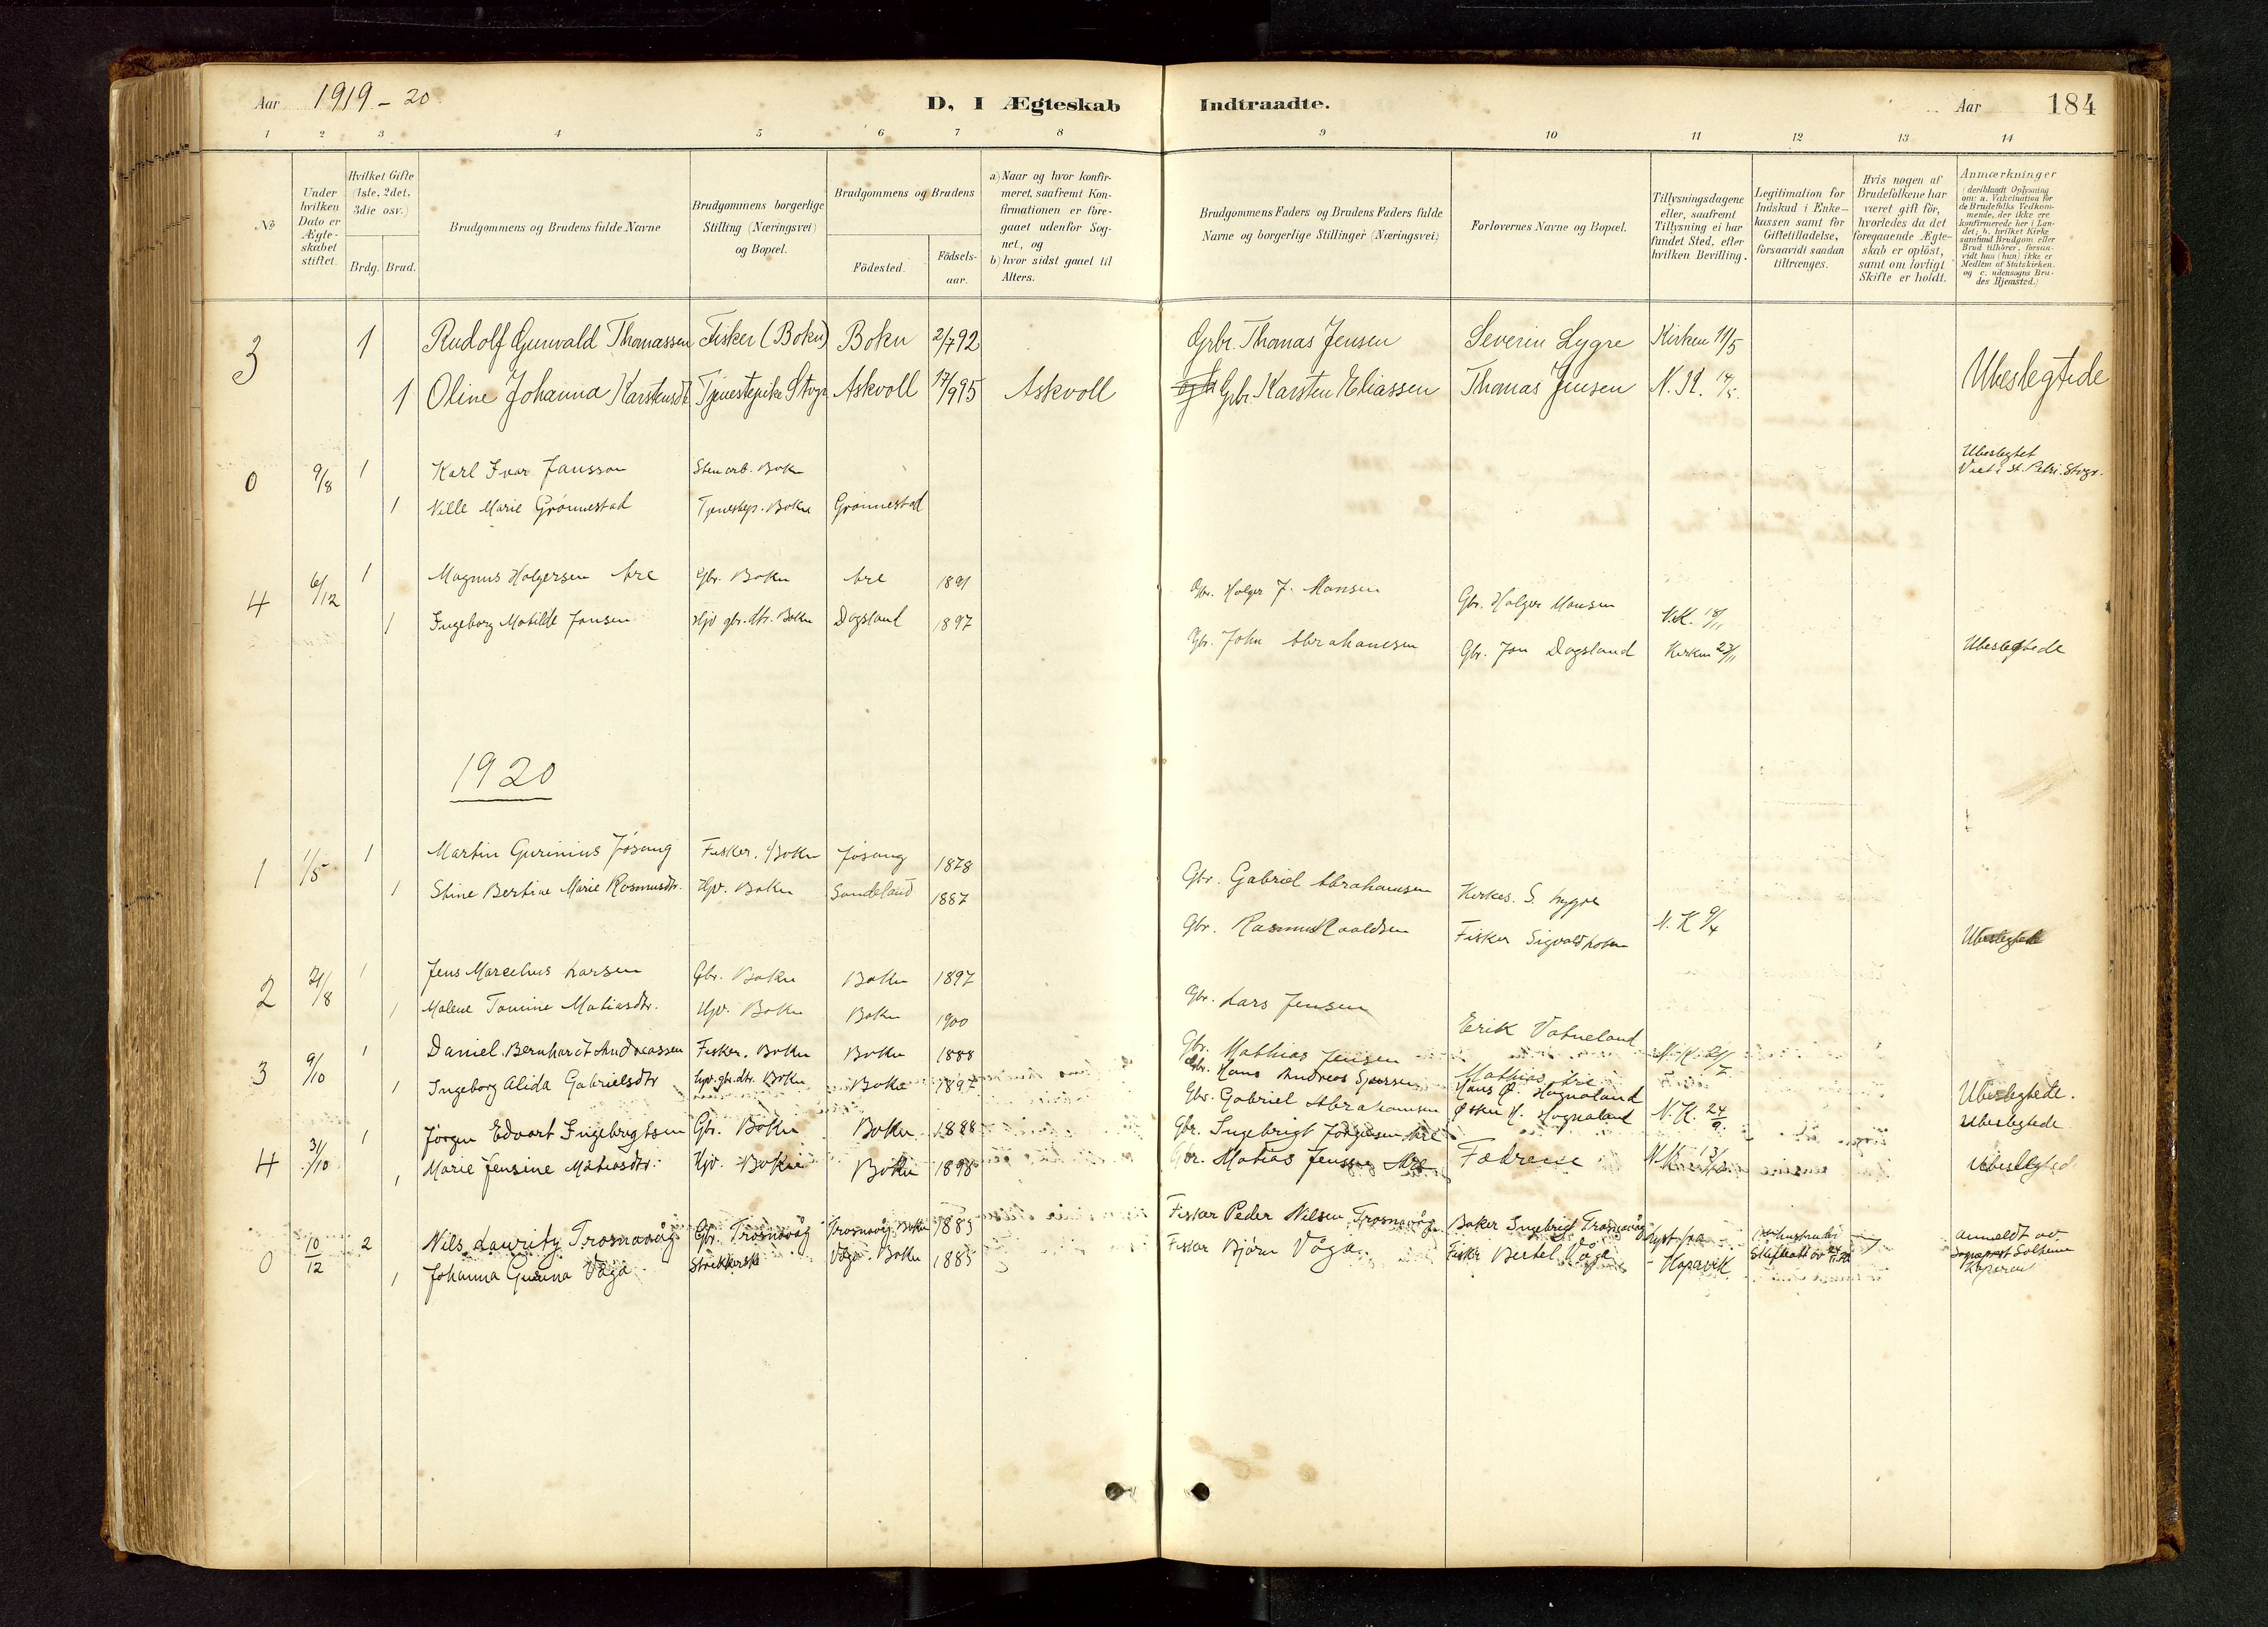 Aar 1919-20. D, I Ægteskab Indtraadte. Aar 184
1 2 3 4 5 6 7 8 9 10 11 12 13 14
No
Under hvilken Dato er Ægteskabet stiftet.
Hvilket Gifte (1ste, 2det, 3die osv.)
Brdg. Brud.
Brudgommens og Brudens fulde Navne
Brudgommens borgerlige Stilling (Næringsvei) og Bopæl.
Brudgommens og Brudens
Födested. Födselsaar.
a) Naar og hvor konfirmeret, saafremt Konfirmationen er foregaaet udenfor Sognet, og
b) hvor sidst gaaet til Alters.
Brudgommens Faders og Brudens Faders fulde Navne og borgerlige Stillinger (Næringsvei)
Forlovernes Navne og Bopæl.
Tillysningsdagene eller, saafremt Tillysning ei har fundet Sted, efter hvilken Bevilling.
Legitimation for Indskud i Enkekassen samt for Giftetilladelse, forsaavidt saadan tiltrænges.
Hvis nogen af Brudefolkene har været gift för, hvorledes da det foregaaende Ægteskab er oplöst, samt om lovligt Skifte er holdt.
Anmærkninger (deriblandt Oplysning om: a. Vakcination for de Brudefolks Vedkommende, der ikke ere konfirmerede her i Landet; b. hvilket Kirkesamfund Brudgom eller Brud tilhörer, forsaavidt han (hun) ikke er Medlem af Statskirken, og c. udensogns Brudes Hjemsted.)
3 1 Rudolf Gunvald Thomassen Fisker (Bokn) Bokn 2/7 92 Grbr. Thomas Jensen Severin Lygre Kirken 11/5
1 Oline Johanna Karstensdt Tjenestepike Stvgr. Askvoll 17/9 95 Askvoll Grbr. Karsten Eliassen Thomas Jensen N. K. 14/5. Ubeslegtede
0 9/8 1 Karl Ivar Jansson Stenarb. Bokn Ubeslegtet
Viet i St. Petri. Stvgr.
1 Nille Marie Grönnestad Tjenestep. Bokn Grönnestad
4 6/12 1 Magnus Holgersen Are Gbr. Bokn Are 1891 Gbr. Holger J. Monsen Gbr. Holger Monsen N.K. 18/11
1 Ingeborg Matilde Jonsen Hjv gbr.dtr. Bokn Dagsland 1897 Gbr. John Abrahamsen Gbr. Jon Dagsland Kirken 23/11 Ubeslegtede
1920
1 1/5 1 Martin Gurinius Jösang Fisker. Bokn Jösang 1878 Gbr. Gabriel Abrahamsen Kirkes. S. Lygre
1 Stine Bertine Marie Rasmusdtr. Hjv. Bokn Sandeland 1887 Gbr. Rasmus Roaldsen Fisker Sigvald N. K 9/4 Ubeslegtede
2 21/8 1 Jens Marcelius Larsen Gbr. Bokn Bokn 1897 Gbr. Lars Jensen Erik Vatneland
1 Malene Tomine Matiasdtr. Hjv. Bokn Bokn 1900 Gbr. Mathias Jensen Mathias Are N. K. 21/7 Ubeslegtede.
3 9/10 1 Daniel Bernhardt Andreassen Fisker. Bokn Bokn 1888 Gbr. Hans Andreas Hans Ø. Hognaland
1 Ingeborg Alida Gabrielsdtr Hjv. gbr.dtr. Bokn Bokn 1897 Gbr. Gabriel Abrahamsen H. Hognaland N. K. 24/9 Ubeslegtede
4 31/10 1 Jörgen Edvart Ingebrigtsen Gbr. Bokn Bokn 1888 Gbr. Ingebrigt Jörgensen Are
1 Marie Jensine Matiasdtr. Hjv. Bokn Bokn 1898 Gbr. Matias Jensen Are Fædrene N.K. 13/10 Ubeslegted
0 10/12 2 Nils Lauritz Trosnavåg Gbr. Trosnavåg Trosnavåg Bokn 1885 Fisker Peder Nilsen Trosnavåg Baker Ingebrigt Trosnavåg Lyst fra anmeldt av
1 Johanna Gurina Våga Strikkerske Våga. Bokn 1885 Fisker Bjørn Våga Fisker Bertel Våga Kopavik Skifteatt av sogneprest Solheim